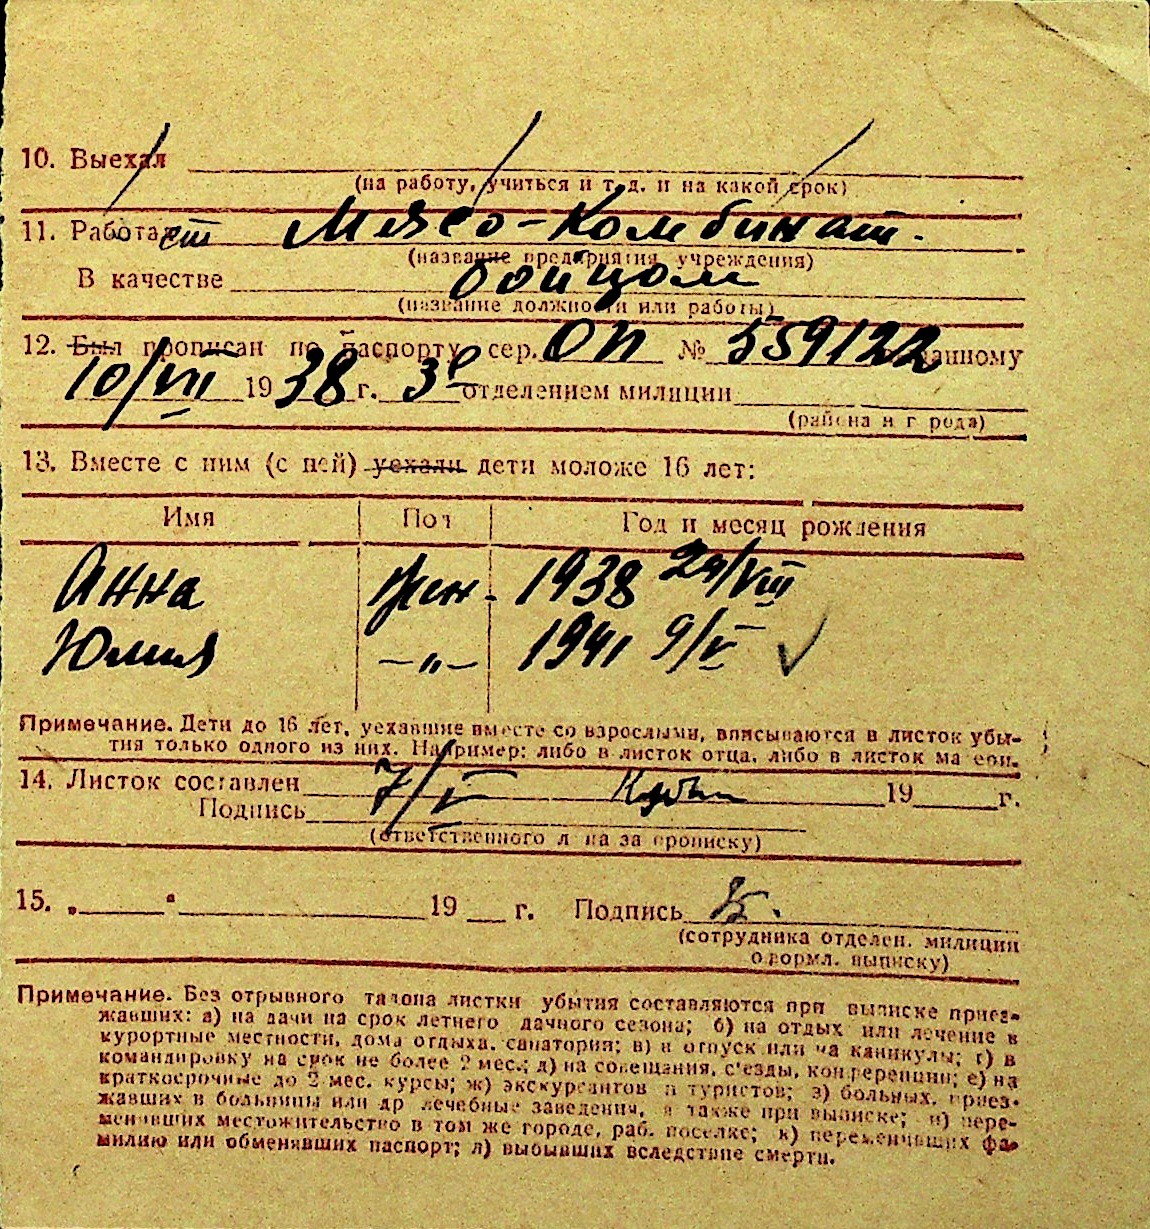 10. Выехал
(на работу, учиться и т. д. и на какой срок)
11. Работает Мясо-Комбинат.
(название предприятия учреждения)
В качестве бойцом
(название должности или работы)
12. Был прописан по паспорту сер. ОП № 559122 выданному
10/VII 1938 г. 3е отделением милиции
(района и города)
13. Вместе с ним (с ней) уехали дети моложе 16 лет:
Имя Пол Год и месяц рождения
Анна жен. 1938 29/VIII
Юлия —„— 1941 9/V
Примечание. Дети до 16 лет, уехавшие вместе со взрослыми, вписываются в листок убы-
тия только одного из них. Например: либо в листок отца, либо в листок матери.
14. Листок составлен 7/V 19 г.
Подпись
(ответственного лица за прописку)
15. „ “ 19 г. Подпись
(сотрудника отделен. милиции
оформл. выписку)
Примечание. Без отрывного талона листки убытия составляются при выписке приез-
жавших: а) на дачи на срок летнего дачного сезона; б) на отдых или лечение в
курортные местности, дома отдыха, санатории; в) в отпуск или на каникулы; г) в
командировку на срок не более 2 мес.; д) на совещания, с'езды, конференции; е) на
краткосрочные до 2 мес. курсы; ж) экскурсантов и туристов; з) больных, приез-
жавших в больницы или др лечебные заведения, а также при выписке; и) пере-
менивших местожительство в том же городе, раб. поселке; к) переменивших фа-
милию или обменявших паспорт; л) выбывших вследствие смерти.